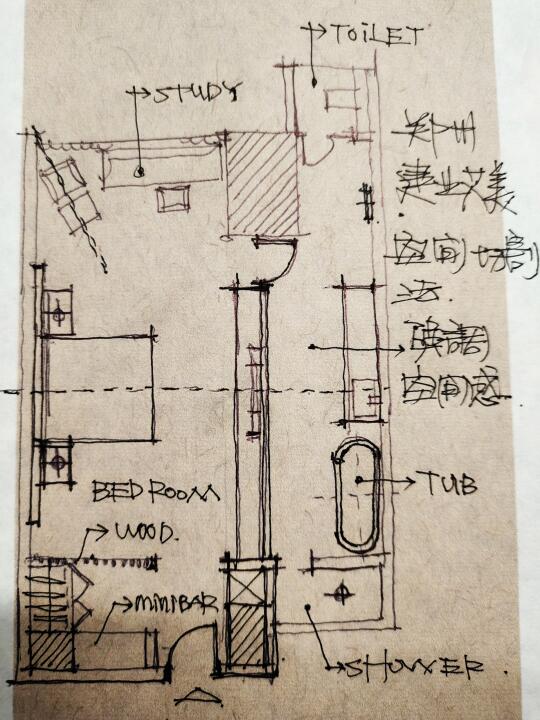 TOILET
STUDY
郑州
建业艾美.
空间切割
法.
强調
空间感.
TUB
BEDROOM
WOOD.
MINIBAR
SHOWER.